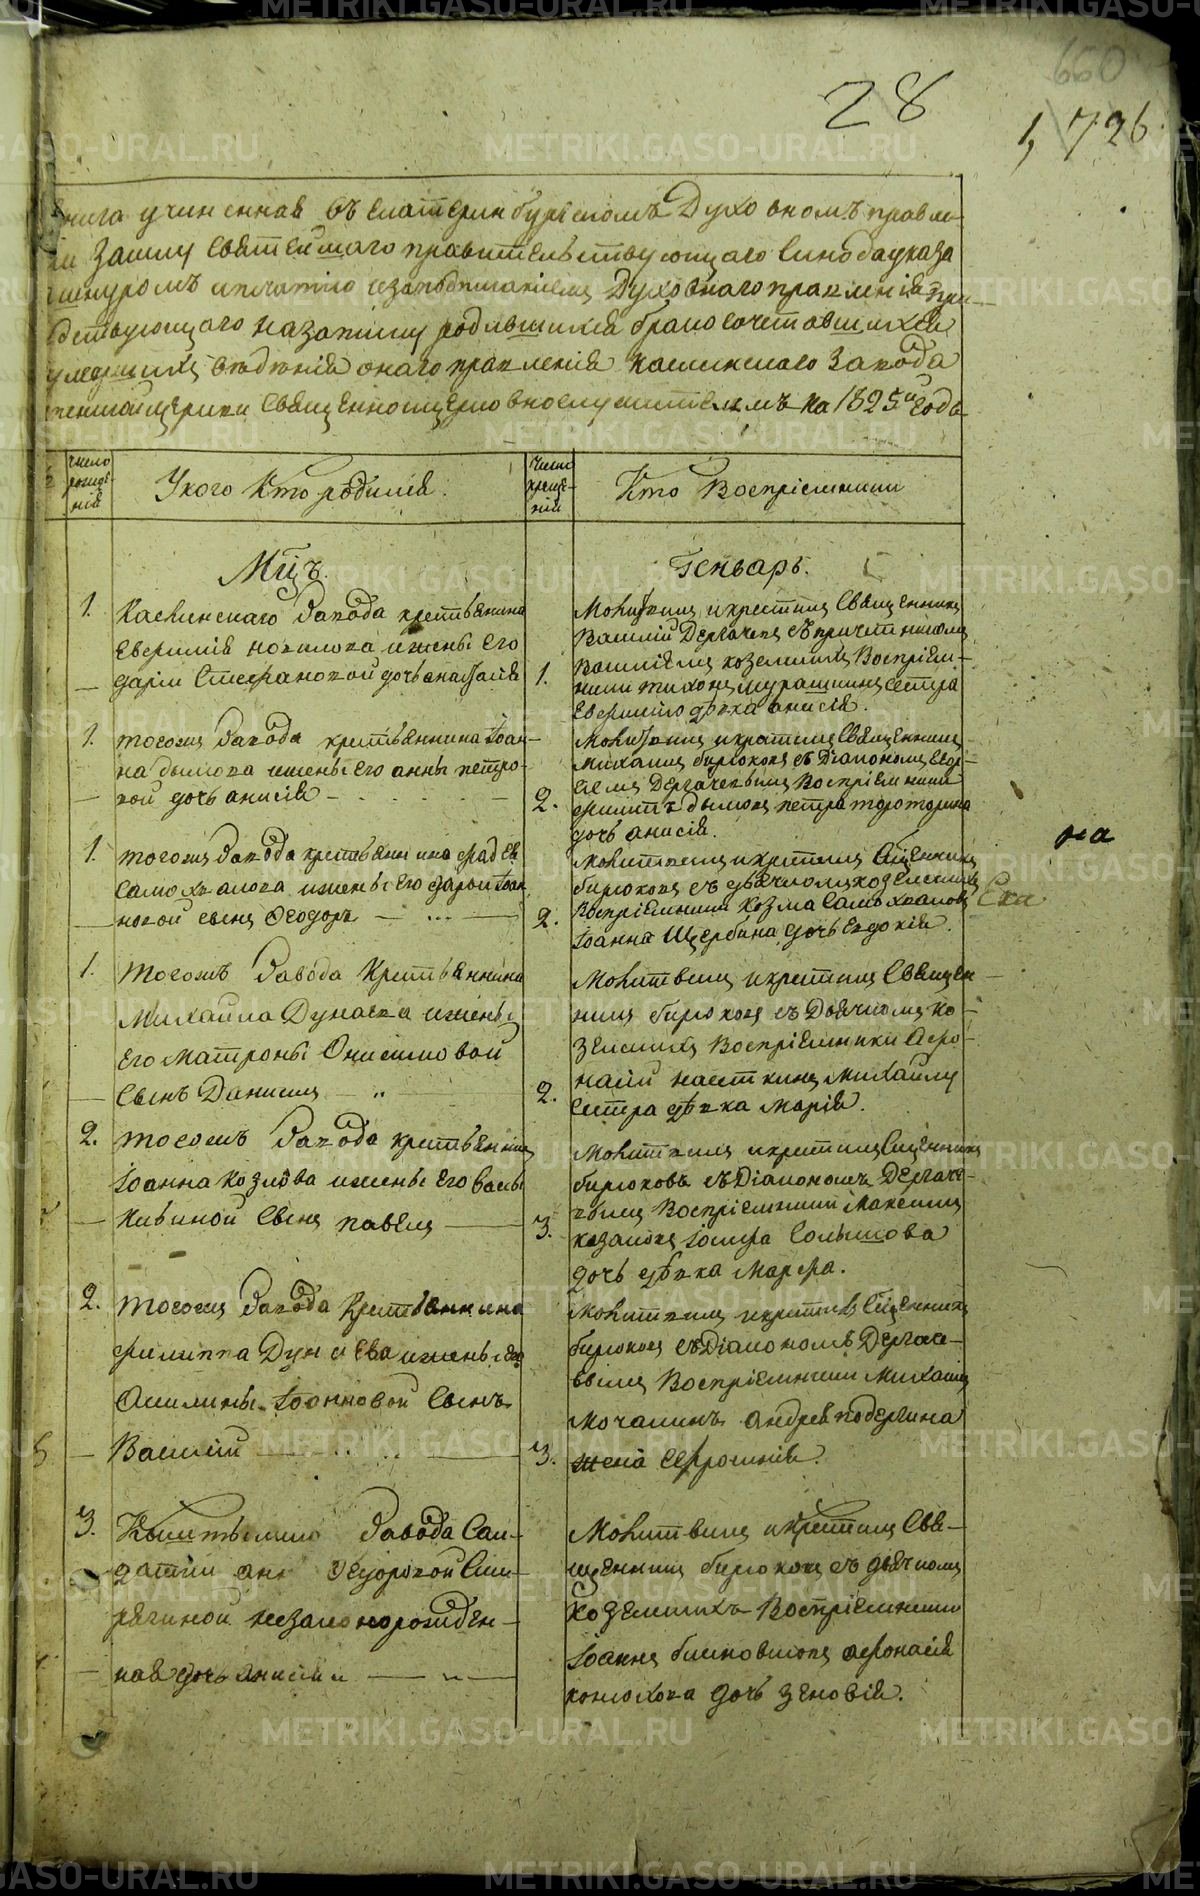 28
660
1,726
книга учиненная въ екатеринбургскомъ Духовномъ правле
ии Засилу Святейшаго правительствующаго Синода указа
шнуромъ ипечатью изаподписаниемъ Духовнаго правления при
сутствующаго назапись родившихся бракосочетавшихся
умерших ведения онаго правления каслинскаго Завода
церкви священноцерковнослужителямъ на 1825й годъ
число рождений
Укого Кто родился.
число крещений
Кто Восприемники
Мцъ.
Генварь.
1. Каслинскаго Завода крестьянина
Евфимия иженыЕго
дарьи Стефановой дочь анастасия
1.
Молитвилъ икрестилъ Священникъ
Василий Дергачевъ съпричетникомъ
Василиемъ козелскихъ Восприем-
ники тихонъ мурашкинъ сестра
Евфимию девка анисия.
1. тогожъ Завода крестьянина Іоан-
на дымова иженыЕго анны петро-
вой дочь анисия
2.
Молитвилъ икрестилъ Священникъ
Михаилъ бирюковъ съ Діакономъ Геор-
гіемъ Дергачевымъ Восприемники
филипъ дымовъ петра тороторина
дочь анисия.
1. тогожъ Завода крестьянина фадея
самохвалова иженыЕго дарьи Іоан
новой сынъ Феодоръ
2.
молитвилъ икрестилъ Сщенникъ
бирюковъ съ дьячкомъ козелскихъ
Восприемники козма Самохваловъ
Іоанна Щербина дочь Евдокия.
1. тогожъ Завода Крестьянина
Михаила Дунаева иженъы
Его Матроны Онисимовой
Сынъ Даниилъ
2.
Молитвилъ икрестилъ Священ
никъ бирюковъ съ Дьячкомъ ко-
зелскихъ Восприемники Афо-
насий Михаилу
Сестра девка Мария.
2. тогожъ Завода крестьянина
Іоанна козлова иженыЕго васы
Кивиной Сынъ павелъ
3.
Молитвилъ икрестилъ Сщенникъ
бирюковъ съ Діакономъ Дергаче-
вымъ Восприемники Максимъ
казаковъ Іосифа
дочь девка Марфа.
2. тогожъ Завода Крестьянина
филиппа Дунаева иженыЕго
Акилины Іоанновой Сынъ
Василий
3.
Молитвилъ икрестилъ Сщенникъ
бирюковъ съ Діакономъ Дергаче-
вымъ Восприемники Михаилъ
Мочалинъ андрея подергина
жена
3. Кыштымскаго Завода Сол-
датки анны Феодоровой
незаконорожден-
ная дочь анисия
Молитвилъ икрестилъ Свя-
щенникъ бирюковъ съ дьячкомъ
козелскихъ Восприемники
Іоаннъ афонасия
конюхова дочь зеновия.